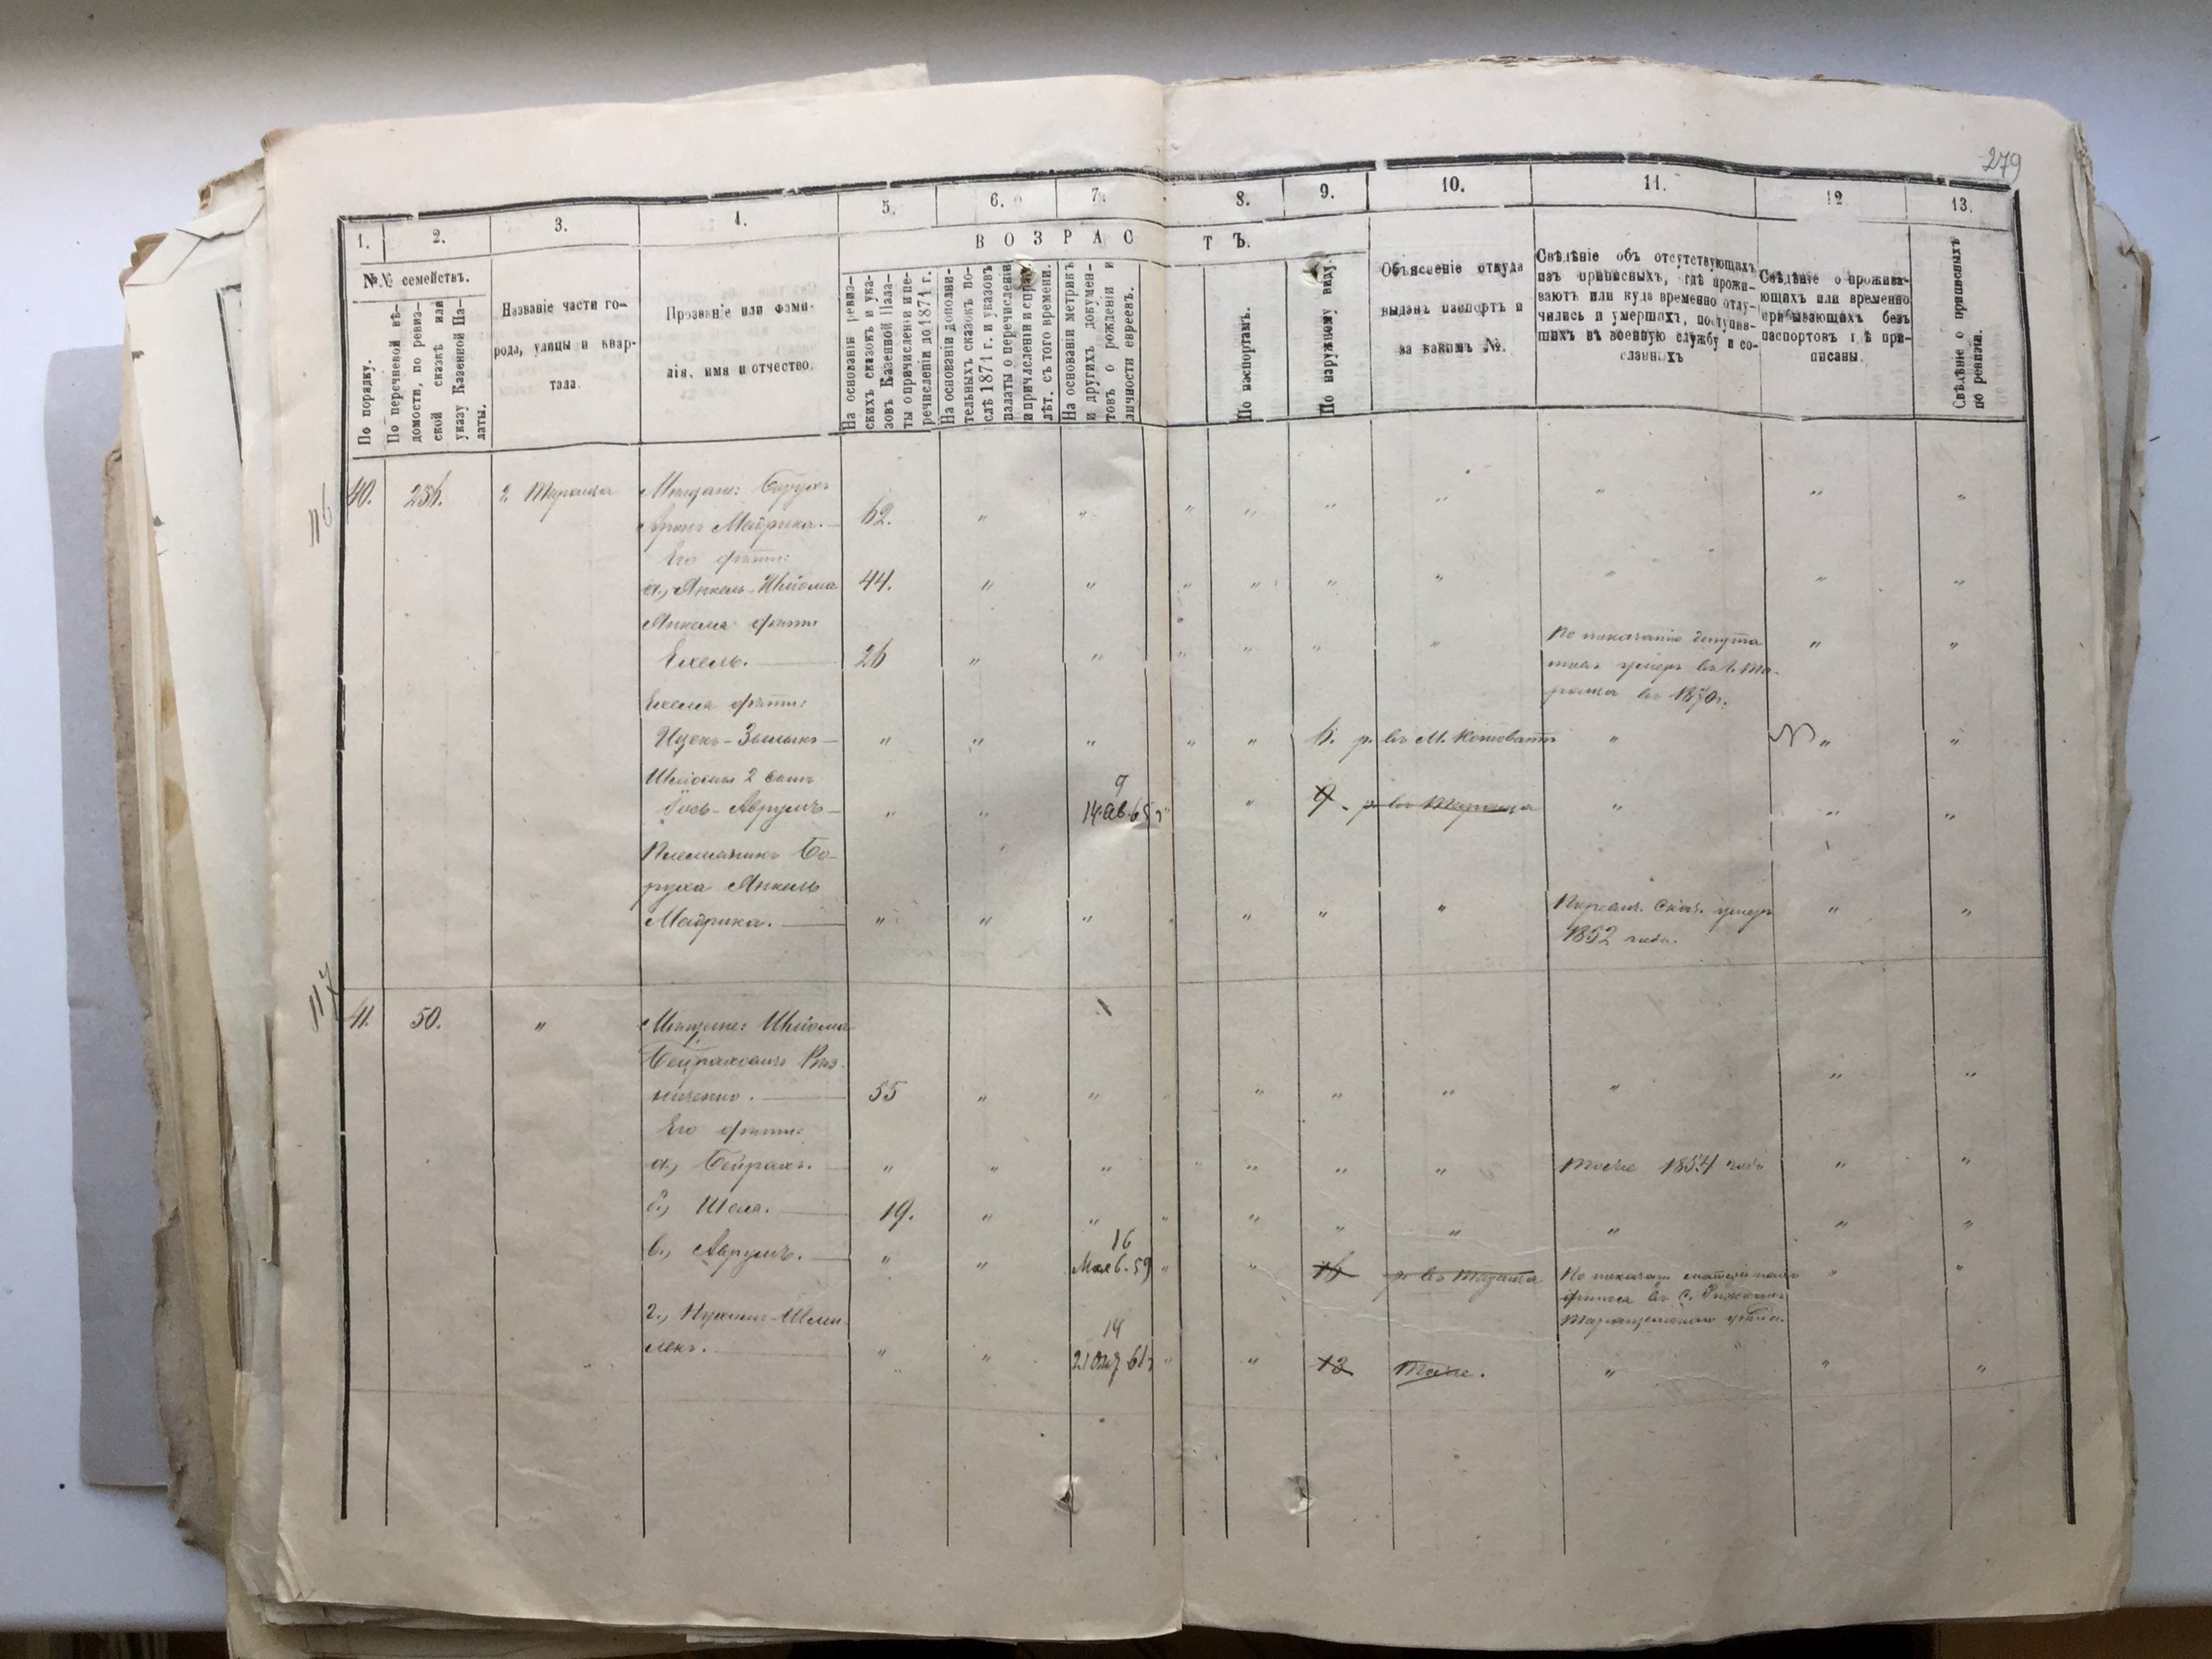 279
1.
2.
3.
4.
5.
6.
7.
8.
9.
10.
11.
12
13.
ВОЗРАСТЪ.
№№ семействъ.
По порядку.
По перечневой вѣ-
домости, по ревиз-
ской сказкѣ или
указу Казенной Па-
латы.
Названіе части го-
рода, улицы и квар-
тала.
Прозваніе или фами-
лія, имя и отчество.
На основаніи ревиз-
скихъ сказокъ и ука-
зовъ Казенной Пала-
ты о причисленіи и пе-
речисленіи до 1871 г.
На основаніи дополни-
тельныхъ сказокъ по-
слѣ 1871 г. и указовъ
палаты о перечисленіи
и причисленіи и справ.
лѣт. съ того времени.
На основаніи метрикъ
и другихъ докумен-
товъ о рожденіи и
личности евреевъ.
По паспортамъ.
По наружному виду.
Объясненіе откуда
выданъ паспортъ и
за какимъ №.
Свѣдѣніе объ отсутствующихъ
изъ приписныхъ, гдѣ прожи-
ваютъ или куда временно отлу-
чились и умершихъ, поступив-
шихъ въ военную службу и со-
сланныхъ
Свѣдѣніе о прожива-
ющихъ или временно
пребывающихъ безъ
паспортовъ гдѣ при-
писаны.
Свѣдѣніе о приписныхъ
по ревизіи.
116
40. 256. г. Тараща Мѣщане: Борухъ
Аронъ Майрика. 62. " " " " " " " " "
Его дѣти:
а., Янкель-Шлйома 44. " " " " " " " " "
Янкеля дѣти
Ехель. 26 " " " " " " По показанію депута
умеръ въ г. Та-
ращѣ въ 1870г. " "
Ехеля дѣти:
Ицекъ-Зельманъ " " " " " 6. р. въ М. " " "
Шлйомы 2 сынъ 9
Іось-Аврумъ " " 14 ав. 65 г " " 9. р. въ Тараща " " "
Племянникъ Бо-
руха Янкель
Майрика. " " " " " " " По ревиз. сказ. умеръ
1852 года. " "
117
41. 50. " Мѣщане: Шлйома
Бейраховичъ Рез-
ниченко. 55 " " " " " " " " "
Его дѣти:
а., Бейрахъ. " " " " " " " тоже 1854 года " "
б., Шеля. 19. " " " " " " " " "
16
в., Аврумъ. " " Мая 6. 59 " " 16 р. въ Тараща По показан.
въ с.
Таращанскаго уѣзда. " "
г., Нухимъ-Шми- 14
лекъ. " " 21 61г " " 13 тоже. " " "